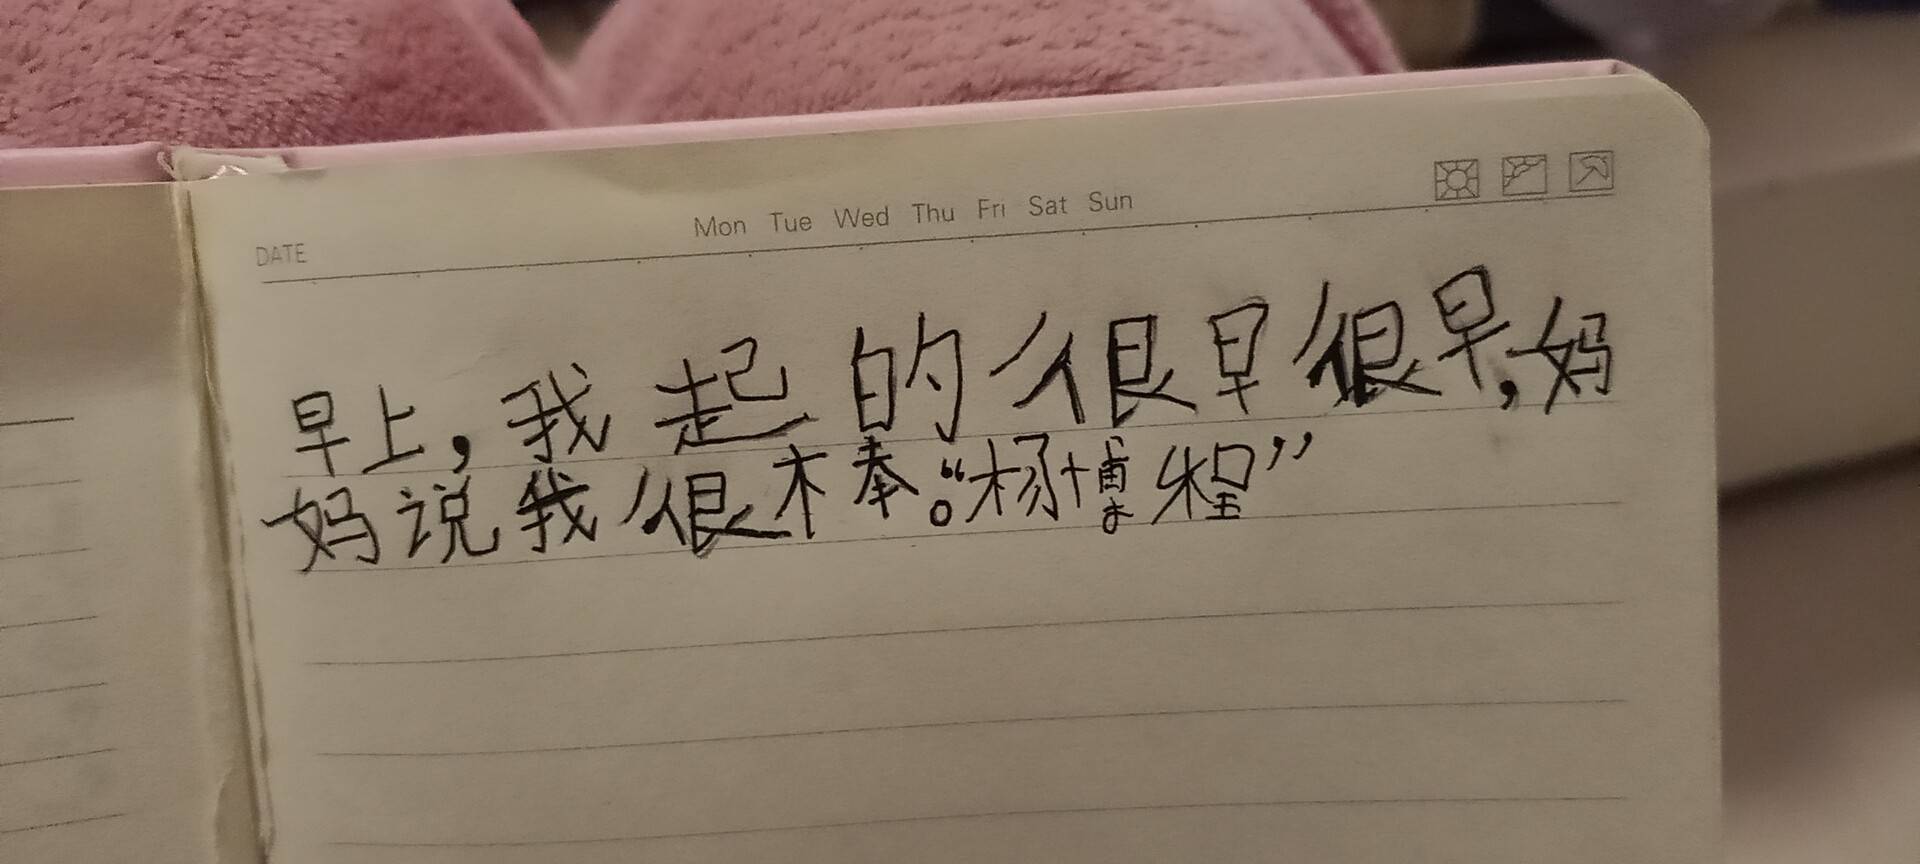 DATE Mon Tue Wed Thu Fri Sat Sun
早上,我起的很早很早,妈
妈说我很棒。“杨博程”